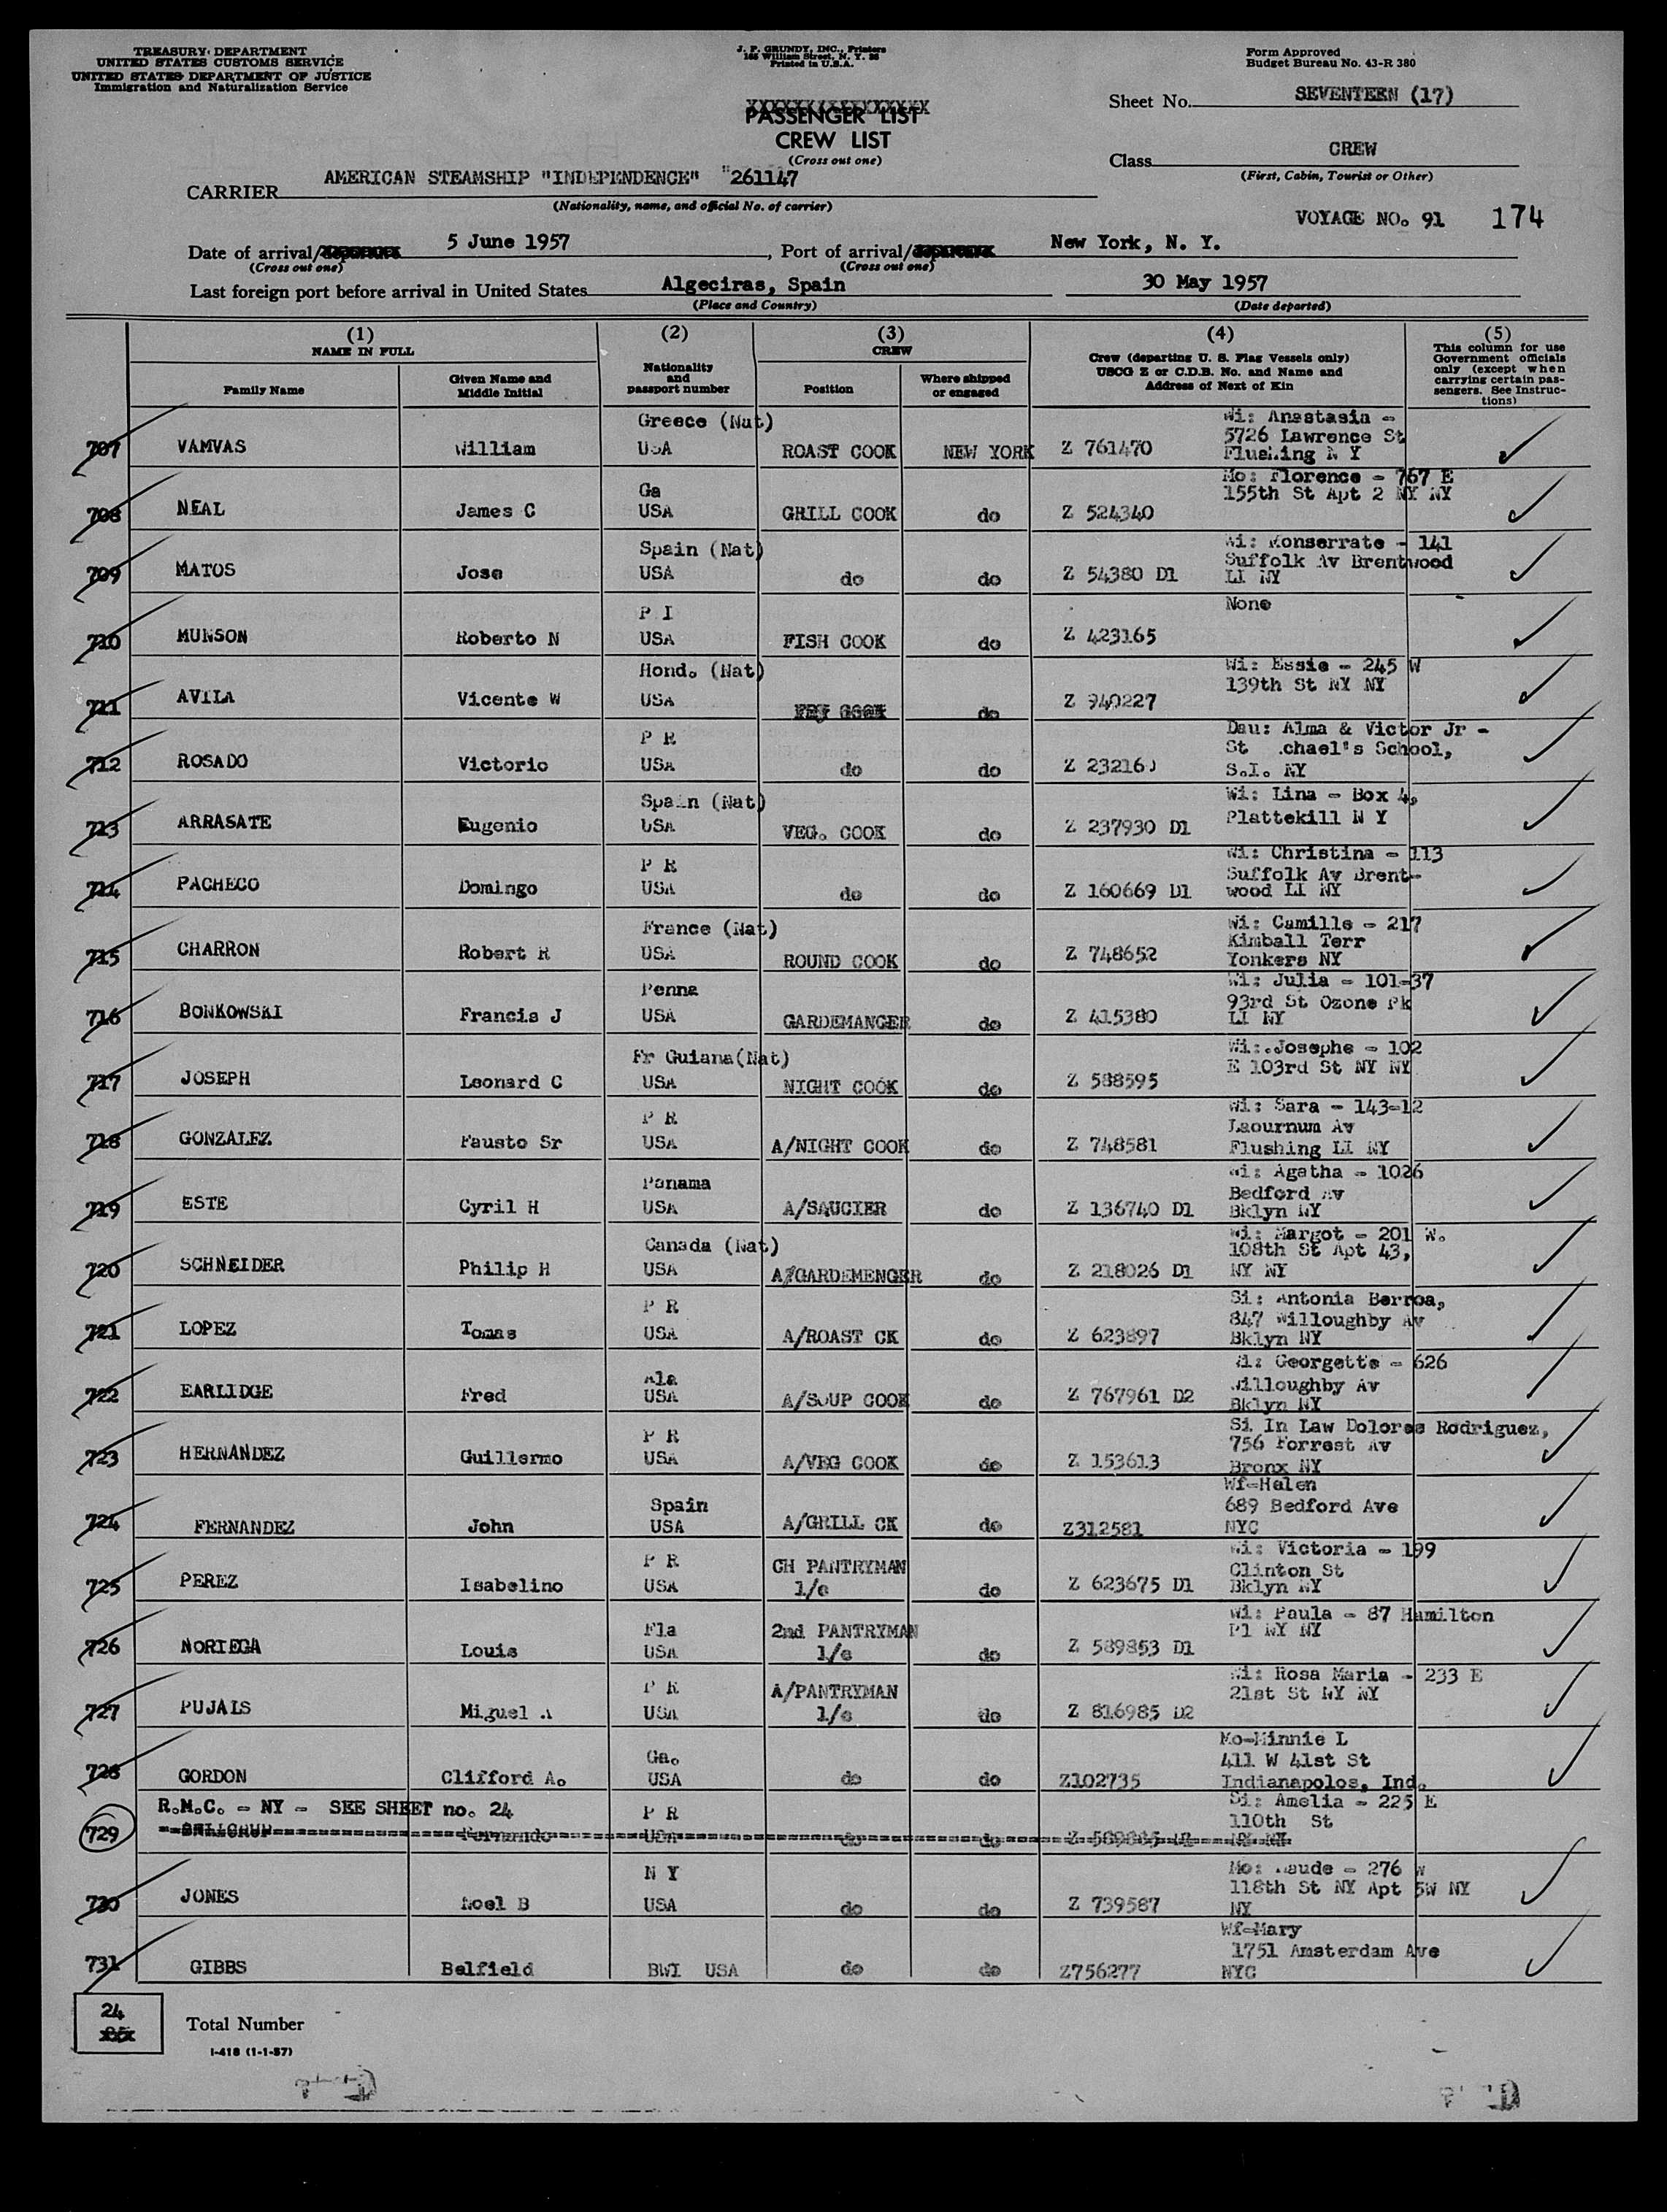 TREASURY DEPARTMENT
UNITED STATES CUSTOMS SERVICE
UNITED STATES DEPARTMENT OF JUSTICE
Immigration and Naturalization Service
J. F. GRUNDY, INC., Printers
165 William Street, N. Y. 38
Printed in U.S.A.
Form Approved
Budget Bureau No. 43-R 380
Sheet No. SEVENTEEN (17)
PASSENGER LIST
CREW LIST
(Cross out one)
Class CREW
(First, Cabin, Tourist or Other)
CARRIER AMERICAN STEAMSHIP "INDEPENDENCE" "261147
(Nationality, name, and official No. of carrier)
VOYAGE NO. 91 174
Date of arrival/departure 5 June 1957, Port of arrival/departure New York, N. Y.
(Cross out one) (Cross out one)
Last foreign port before arrival in United States Algeciras, Spain 30 May 1957
(Place and Country) (Date departed)
(1) NAME IN FULL
Family Name
Given Name and Middle Initial
(2)
Nationality and passport number
(3) CREW
Position
Where shipped or engaged
(4)
Crew (departing U. S. Flag Vessels only)
USCG Z or C.D.B. No. and Name and
Address of Next of Kin
(5)
This column for use
Government officials
only (except when
carrying certain pas-
sengers. See Instruc-
tions)
Greece (Nat) Wi: Anastasia -
5726 Lawrence St
707 VAMVAS William USA ROAST COOK NEW YORK Z 761470 Flushing N Y
Ga Mo: Florence - 767 E
708 NEAL James C USA GRILL COOK do Z 524340 155th St Apt 2 NY NY
Spain (Nat) Wi: Monserrate - 141
Suffolk Av Brentwood
709 MATOS Jose USA do do Z 54380 D1 LI NY
P I None
710 MUNSON Roberto N USA FISH COOK do Z 423165
Hond. (Nat) Wi: Essie - 245 W
139th St NY NY
711 AVILA Vicente W USA FRY COOK do Z 940227
P R Dau: Alma & Victor Jr -
St chael's School,
712 ROSADO Victorio USA do do Z 23216 S.I. NY
Spain (Nat) Wi: Lina - Box 4,
713 ARRASATE Eugenio USA VEG. COOK do Z 237930 D1 Plattekill N Y
P R Wi: Christina - 113
Suffolk Av Brent-
714 PACHECO Domingo USA do do Z 160669 D1 wood LI NY
France (Nat) Wi: Camille - 217
Kimball Terr
715 CHARRON Robert R USA ROUND COOK do Z 748652 Yonkers NY
Penna Wi: Julia - 101-37
93rd St Ozone Pk
716 BONKOWSKI Francis J USA GARDEMANGER do Z 415380 LI NY
Fr Guiana(Nat) Wi: Josephe - 102
E 103rd St NY NY
717 JOSEPH Leonard C USA NIGHT COOK do Z 588595
P R Wi: Sara - 143-12
Laournum Av
718 GONZALEZ Fausto Sr USA A/NIGHT COOK do Z 748581 Flushing LI NY
Panama Wi: Agatha - 1026
Bedford Av
719 ESTE Cyril H USA A/SAUCIER do Z 136740 D1 Bklyn NY
Canada (Nat) Wi: Margot - 201 W.
108th St Apt 43,
720 SCHNEIDER Philip H USA A/GARDEMENGER do Z 218026 D1 NY NY
P R Si: Antonia Berroa,
847 Willoughby Av
721 LOPEZ Tomas USA A/ROAST CK do Z 623897 Bklyn NY
Ala Wi: Georgette - 626
Willoughby Av
722 EARLIDGE Fred USA A/SOUP COOK do Z 767961 D2 Bklyn NY
P R Si In Law Dolores Rodriguez,
756 Forrest Av
723 HERNANDEZ Guillermo USA A/VEG COOK do Z 153613 Bronx NY
Wf-Helen
Spain 689 Bedford Ave
724 FERNANDEZ John USA A/GRILL CK do Z312581 NYC
P R CH PANTRYMAN Wi: Victoria - 199
Clinton St
725 PEREZ Isabelino USA 1/c do Z 623675 D1 Bklyn NY
Fla 2nd PANTRYMAN Wi: Paula - 87 Hamilton
Pl NY NY
726 NORIEGA Louis USA 1/c do Z 589853 D1
P R A/PANTRYMAN Wi: Rosa Maria - 233 E
21st St NY NY
727 PUJALS Miguel A USA 1/c do Z 816985 D2
Mo-Minnie L
Ga. 411 W 41st St
728 GORDON Clifford A. USA do do Z102735 Indianapolos, Ind.
R.M.C. - NY - SEE SHEET no. 24 P R Si: Amelia - 225 E
110th St
729 Fernando USA do do NY NY
N Y Mo: Maude - 276 W
118th St NY Apt 5W NY
730 JONES Noel B USA do do Z 739587 NY
Wf-Mary
1751 Amsterdam Ave
731 GIBBS Belfield BWI USA do do Z756277 NYC
24
Total Number
I-418 (1-1-57)